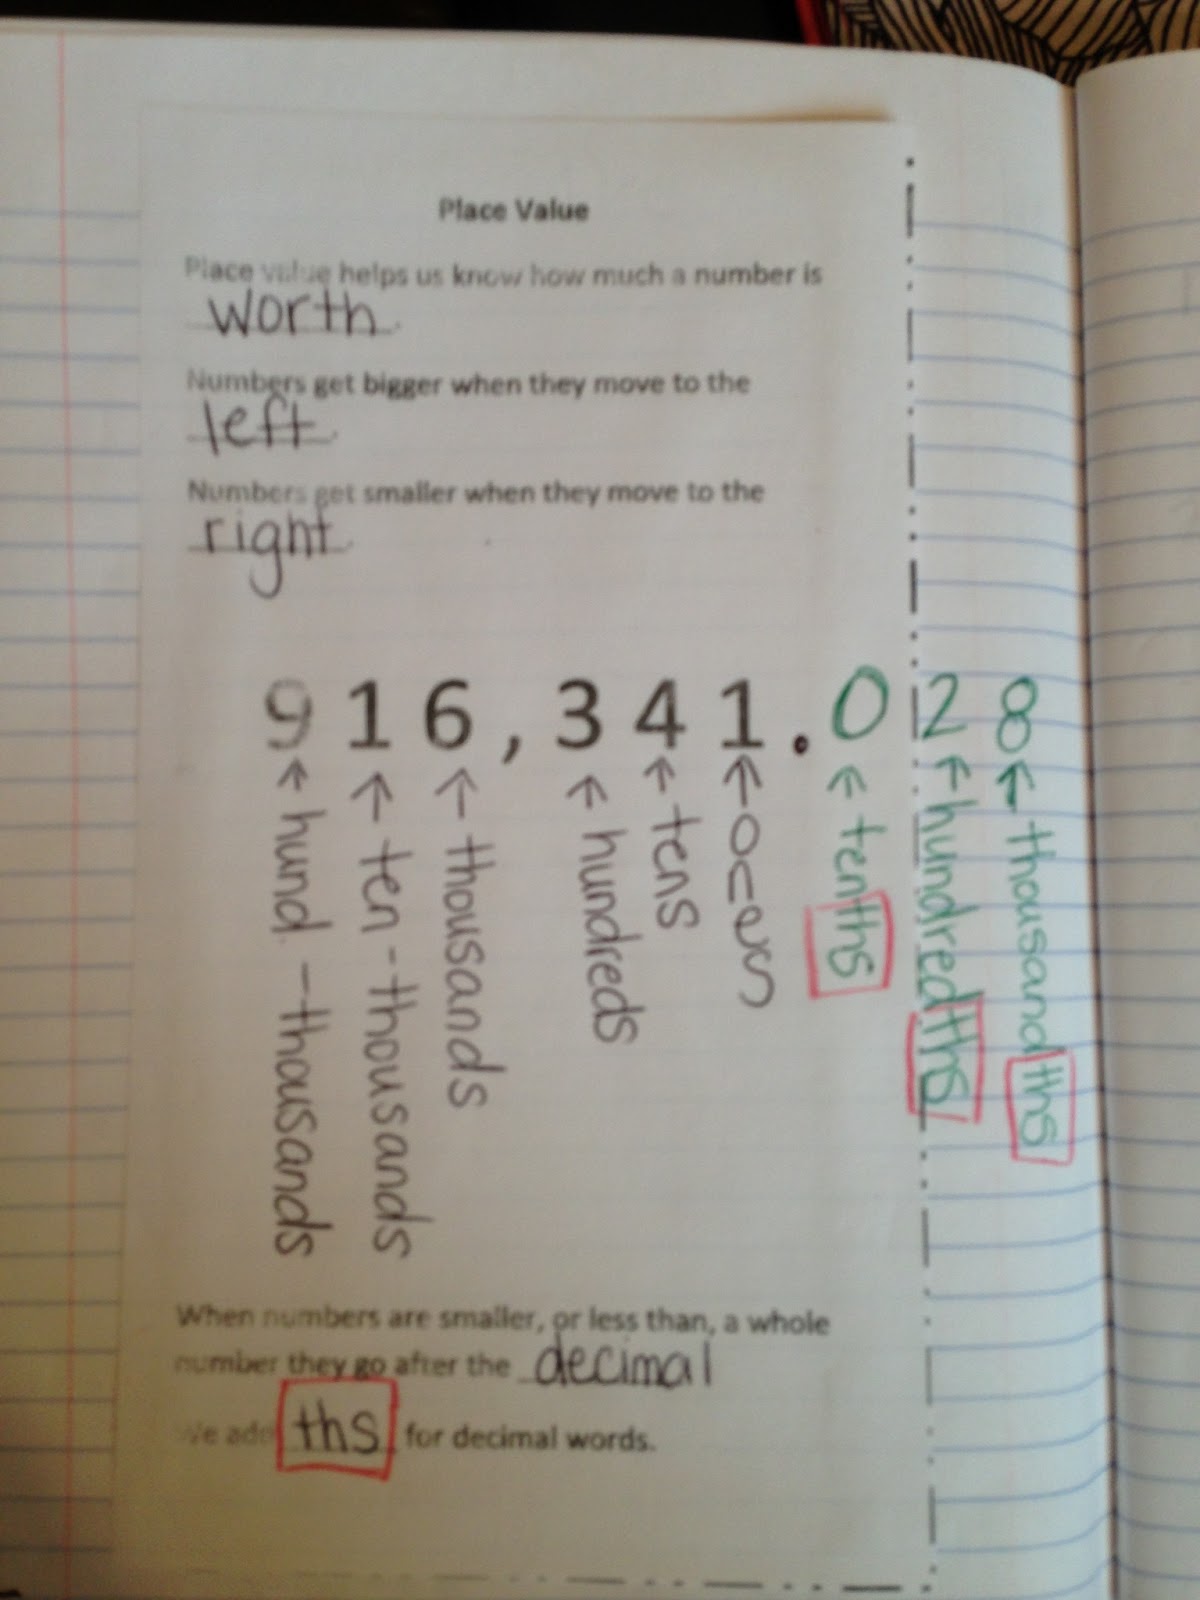 Place Value
Place value helps us know how much a number is
worth.
Numbers get bigger when they move to the
left.
Numbers get smaller when they move to the
right.
916,341.028
hund.-thousands
ten-thousands
thousands
hundreds
tens
ones
tenths
hundredths
thousandths
When numbers are smaller, or less than, a whole
number they go after the decimal
We add ths for decimal words.